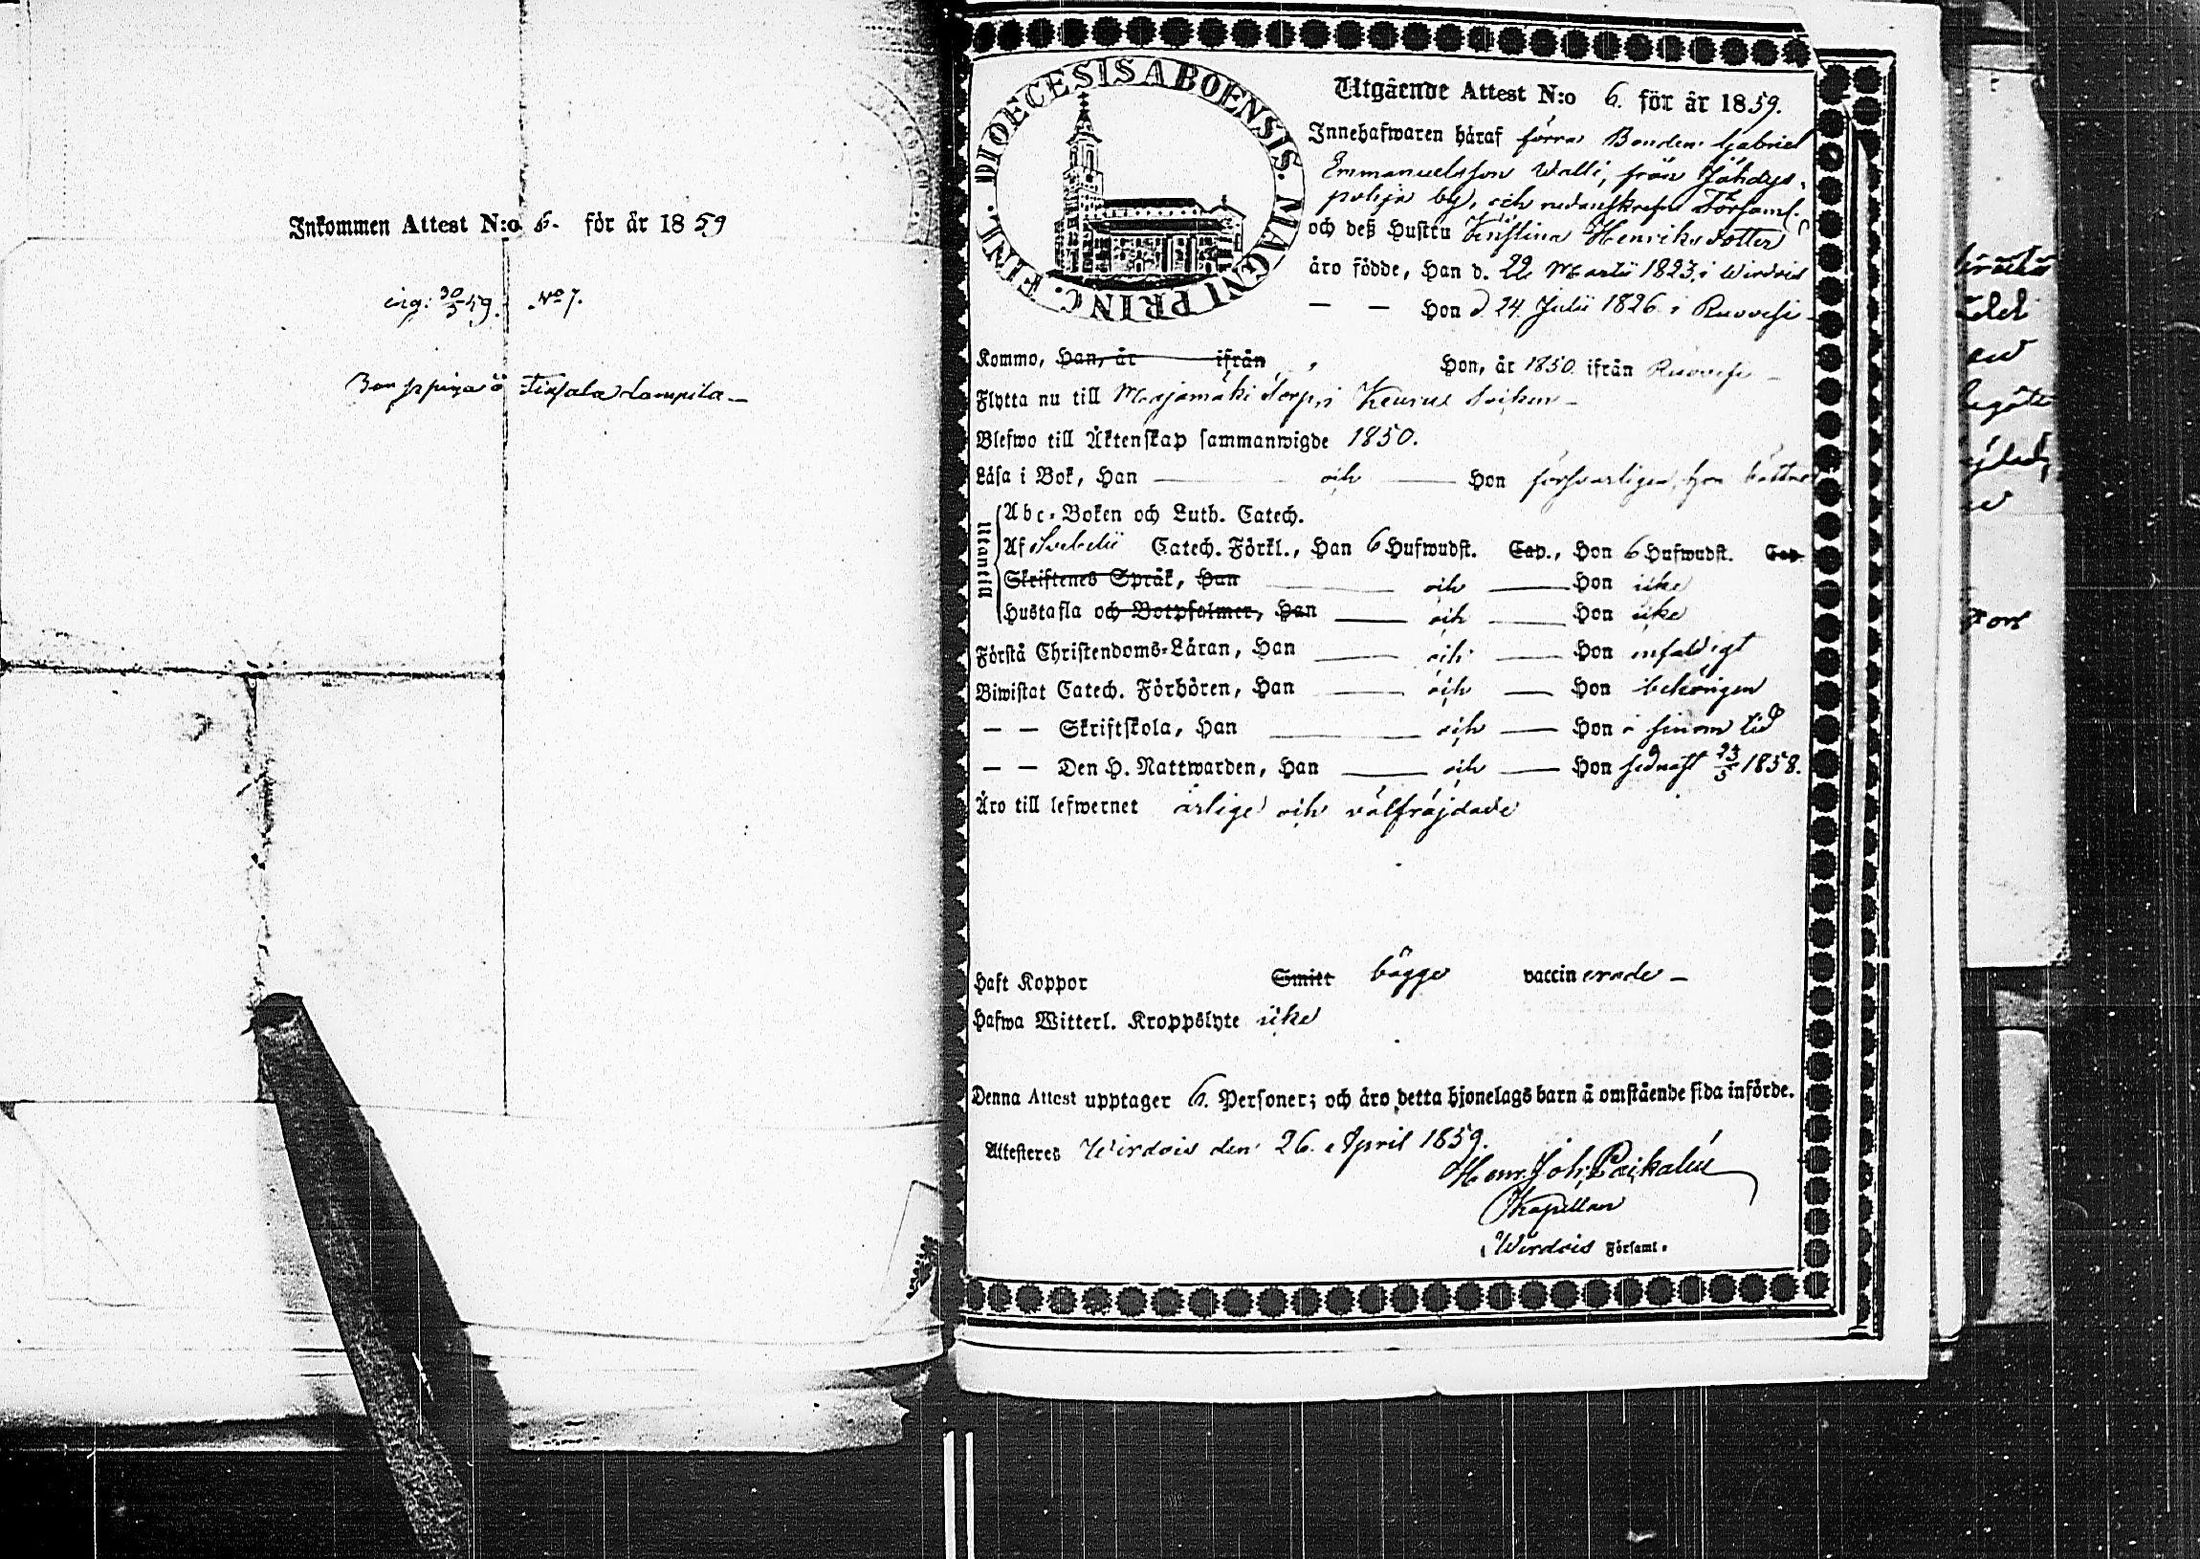 Inkommen Attest N:o 6. för år 1859
N:o 7.
DIOECESIS ABOENSIS. MAGNI PRINC. FINL.
Utgående Attest N:o 6. för år 1859.
Innehafwaren häraf förra Bonden Gabriel
Emmanuelsson Walli, från Jähdys-
pohja by, och nedanskrefne Församl.
och deß Hustru Kristina Henriksdotter
äro födde, Han d. 22 Martii 1823 i Wirdois
— — Hon d. 24 Julii 1826 i Ruovesi -
Kommo, Han, år ifrån Hon, år 1850 ifrån Ruovesi -
Flytta nu till Majamäki torp i Keuruu Socken -
Blefwo till Äktenskap sammanwigde 1850.
Läsa i Bok, Han — och — Hon försvarligen, hon bättre
Utantill
Abc-Boken och Luth. Catech.
Af Svebelii Catech. Förkl., Han 6 Hufwudst. Cap., Hon 6 Hufwudst. Cap.
Skriftenes Språk, Han — och — Hon icke
Hustafla och Botpsalmer, Han — och — Hon icke
Förstå Christendoms-Läran, Han — och — Hon enfaldigt
Biwistat Catech. Förhören, Han — och — Hon behörigen
— — Skriftskola, Han — och — Hon i sinom tid
— — Den H. Nattwarden, Han — och — Hon sednast 23/5 1858.
Äro till lefwernet ärlige och välfräjdade
Haft Koppor Smitt bägge vaccinerade -
Hafwa Witterl. Kroppslyte icke
Denna Attest upptager 6. Personer; och äro detta hjonelags barn å omstående sida införde.
Attesteres Wirdois den 26. April 1859.
Henr. Joh.
Kapellan
i Wirdois Församl.